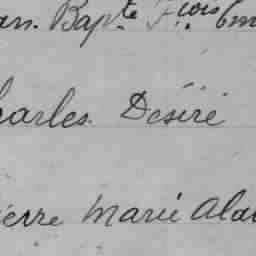 an. Bapte Fcois Em
harles. Désiré
ierre Marie Ala